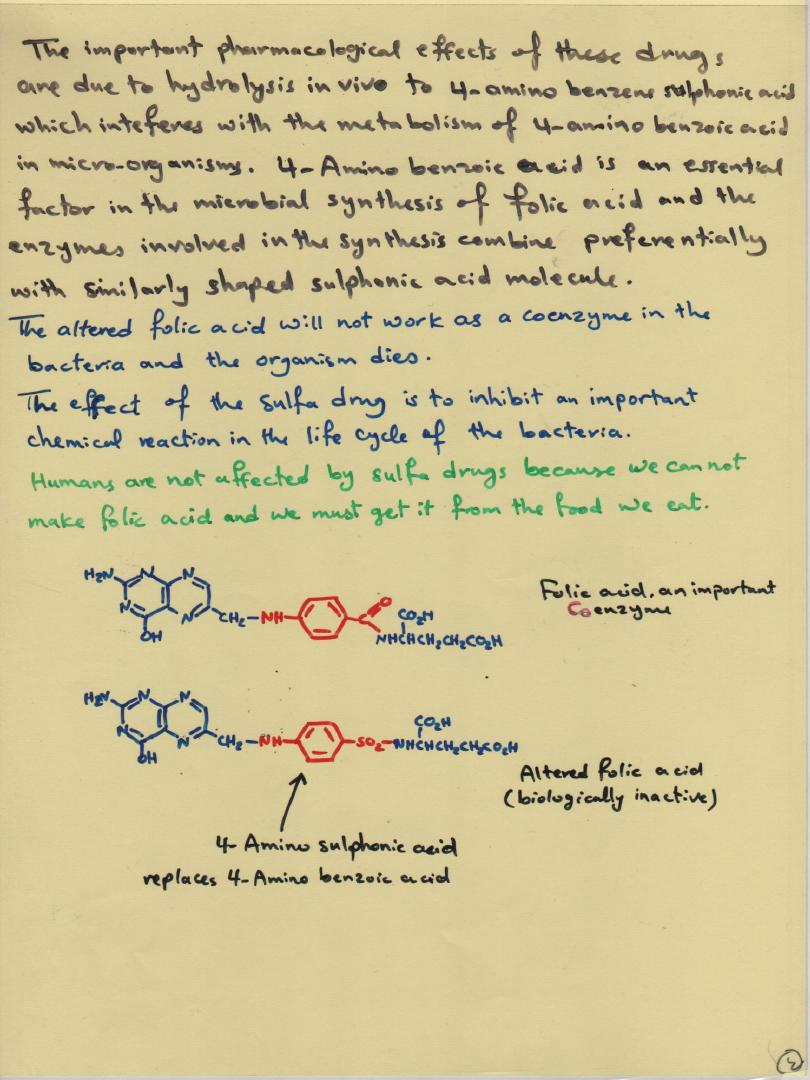 The important pharmacological effects of these drugs
are due to hydrolysis in vivo to 4-amino benzene sulphonic acid
which inteferes with the metabolism of 4-amino benzoic acid
in micro-organisms. 4-Amino benzoic acid is an essential
factor in the microbial synthesis of folic acid and the
enzymes involved in the synthesis combine preferentially
with similarly shaped sulphonic acid molecule.
The altered folic acid will not work as a coenzyme in the
bacteria and the organism dies.
The effect of the sulfa drug is to inhibit an important
chemical reaction in the life cycle of the bacteria.
Humans are not affected by sulfa drugs because we can not
make folic acid and we must get it from the food we eat.
H₂N N N
N N CH₂-NH C O CO₂H
OH NHCHCH₂CH₂CO₂H
Folic acid, an important
Coenzyme
H₂N N N
N N CH₂-NH SO₂-NHCHCH₂CH₂CO₂H
OH CO₂H
Altered folic acid
(biologically inactive)
4-Amino sulphonic acid
replaces 4-Amino benzoic acid